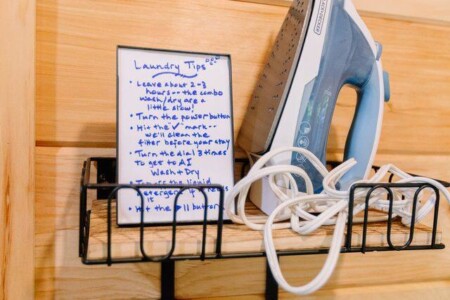 Laundry Tips
• Leave about 2-3
hours -- the combo
wash/dry are a
little slow!
• Turn the power button
• Hit the "✓" mark --
we'll clean the
filter before your stay
• Turn the dial 3 times
to get to AI
Wash + Dry
• Ignore the liquid
detergent if
is
• Hit the ▶II button